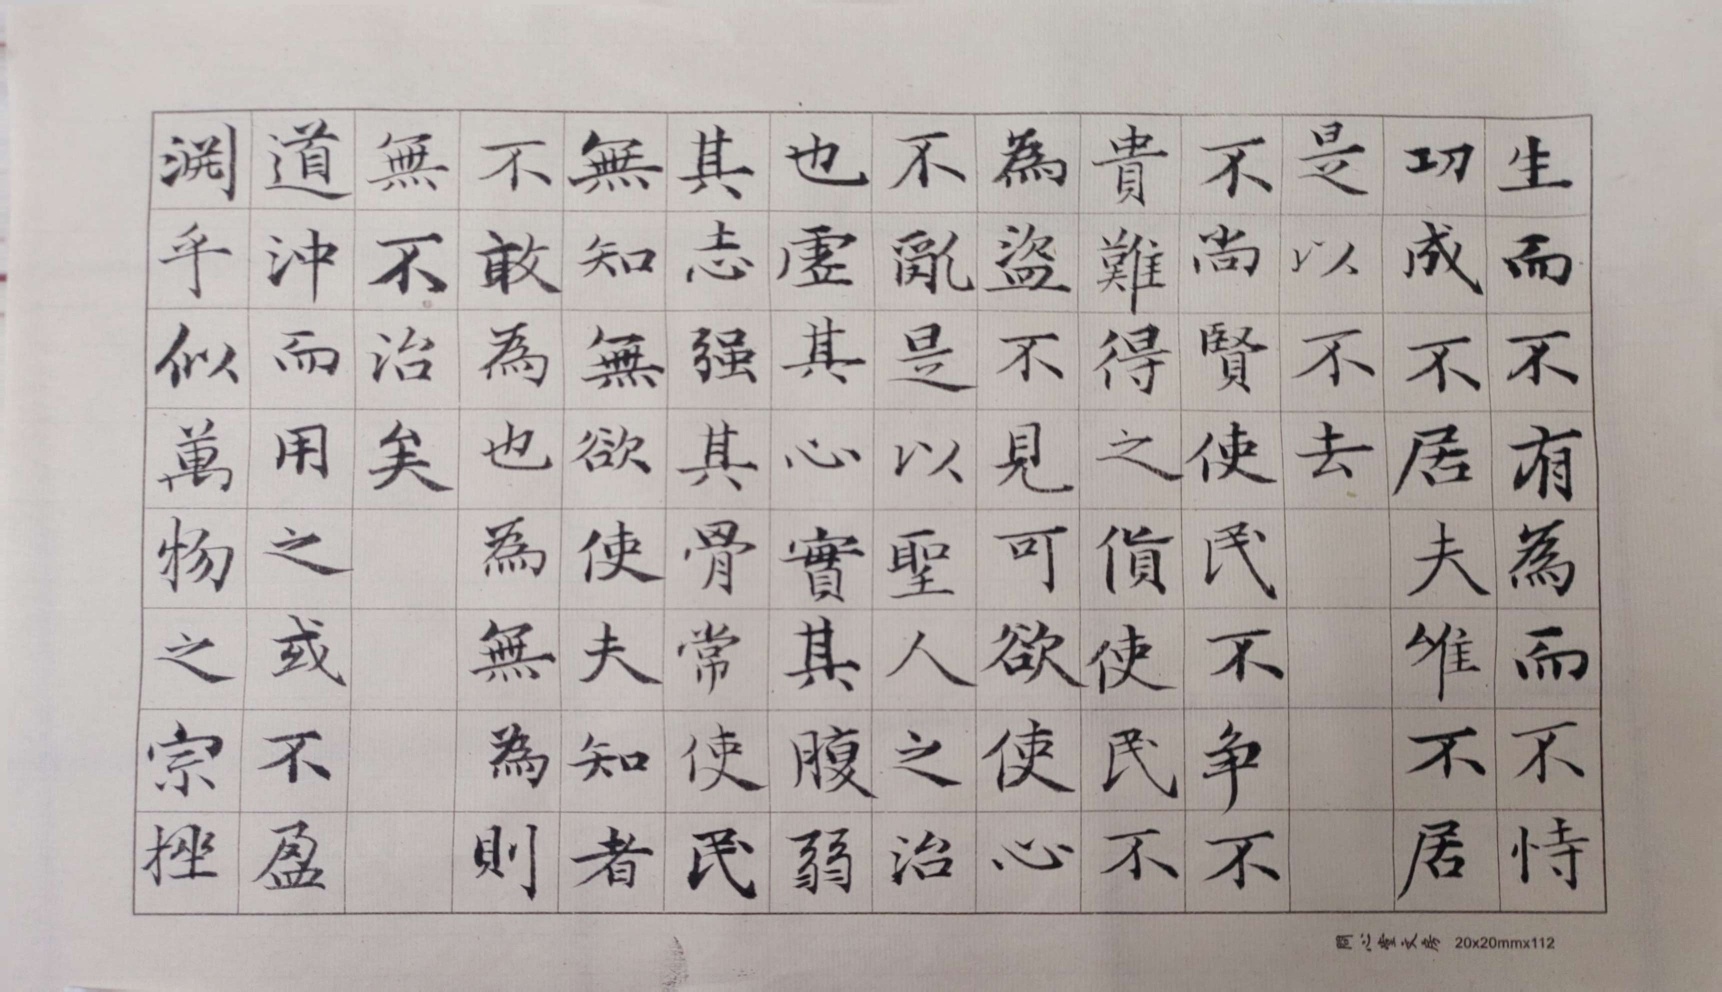 生而不有為而不恃
功成不居夫唯不居
是以不去
不尚賢使民不争不
貴難得之貨使民不
為盜不見可欲使心
不亂是以聖人之治
也虛其心實其腹弱
其志强其骨常使民
無知無欲使夫知者
不敢為也為無為則
無不治矣
道沖而用之或不盈
淵乎似萬物之宗挫
問心堂文房 20x20mmx112